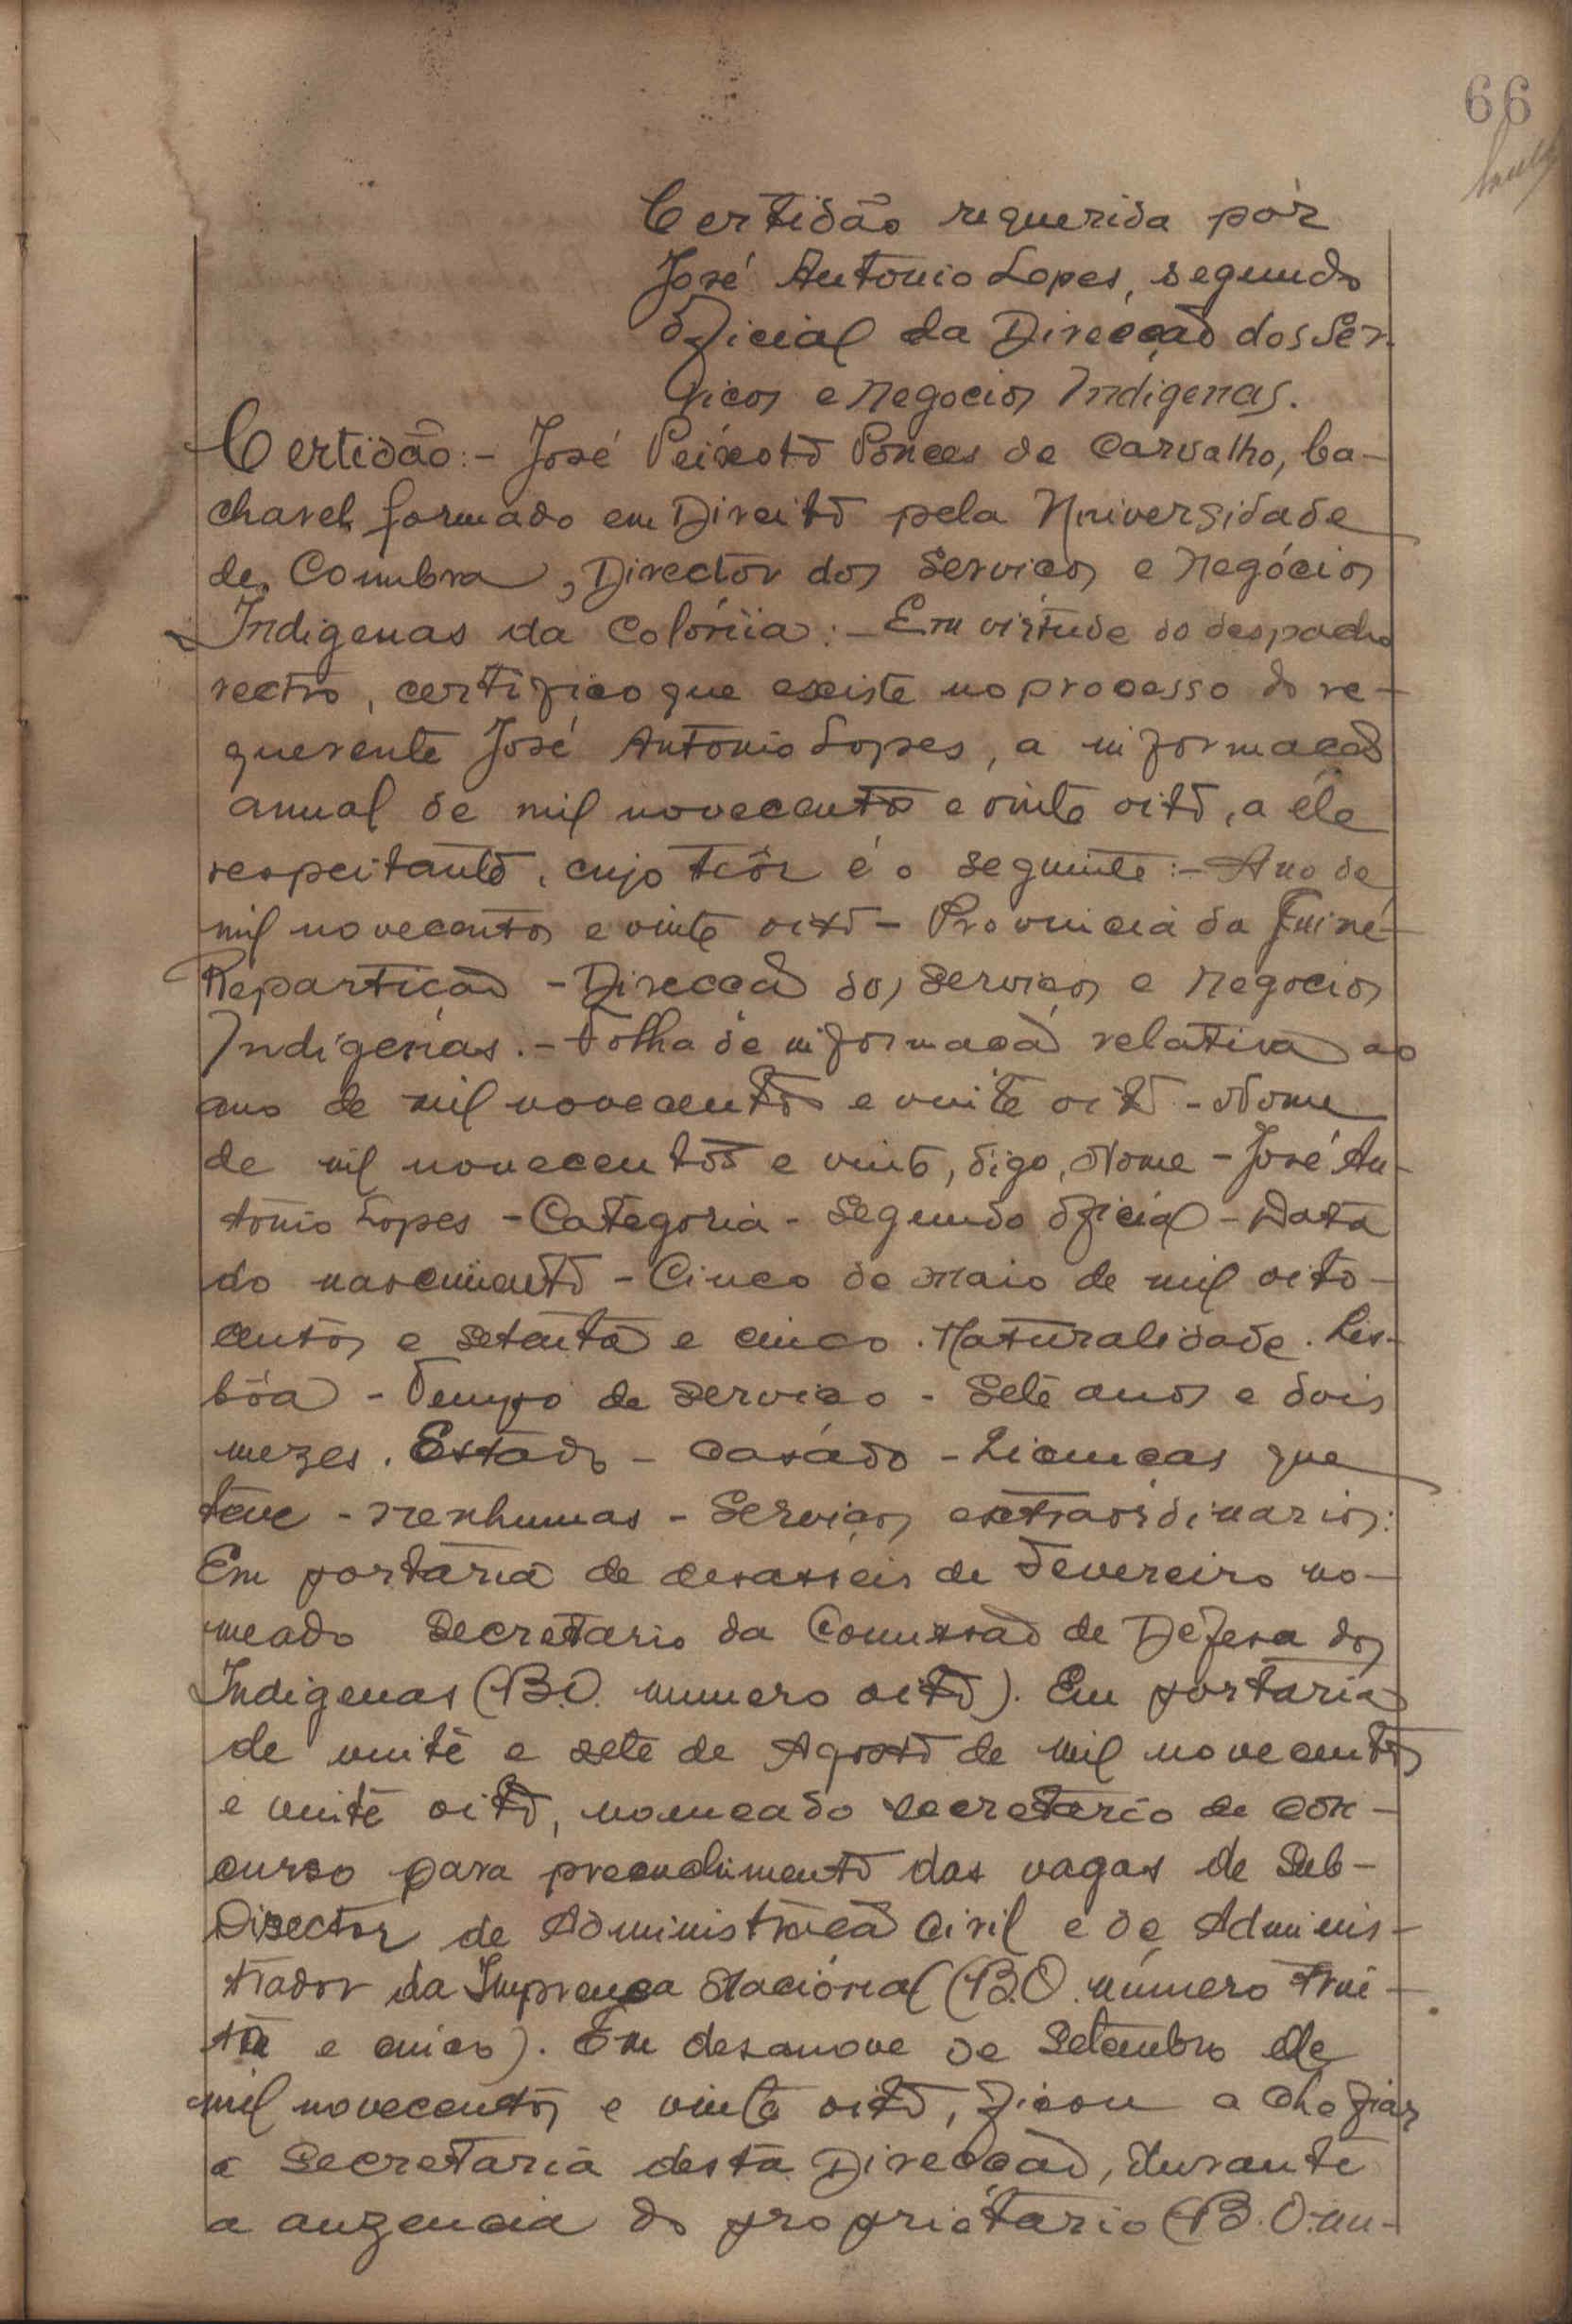 66
Certidão requerida pòr
José Antonio Lopes, segundo
oficial da Direcção dos Ser-
viços e Negocios Indígenas.
Certidão:- José Peixoto Ponces de Carvalho, ba-
charel formado em Direito pela Universidade
de Coimbra, Director dos Serviços e Negócios
Indigenas da Colónia:- Em virtude do despacho
rectro, certifico que existe no processo do re-
querente José Antonio Lopes, a informação
anual de mil novecentos e vinte oito, a êle
respeitanto, cujo teôr é o seguinte:- Ano de
mil novecentos e vinte oito - Provincia da Guiné-
Repartição - Direcção dos Serviços e Negocios
Indigenas.- Folha de informação relativa ao
ano de mil novecentos e vinte oito - Nome
de mil novecentos e vinte, digo, Nome - José An-
tonio Lopes - Categoria - Segundo oficial - Data
do nascimento - Cinco de Maio de mil oito-
centos e setenta e cinco. Naturalidade. Lis-
bôa - Tempo de serviço - Sete anos e dois
mezes. Estado - casádo - Licenças que
teve - nenhumas - Serviços extraordinarios:
Em portaria de desasseis de Fevereiro no-
meado Secretario da Comissão de Defesa dos
Indigenas (B.O. numero oito). Em portaria
de vinte e sete de Agosto de mil novecentos
e vinte oito, nomeado secretario de con-
curso para preenchimento das vagas de Sub-
Director de Administração Civil e de Adminis-
trador da Imprensa Nacional (B.O. número trin-
ta e cinco). Em desanove de Setembro de
mil novecentos e vinte oito, ficou a chefiar
a Secretaria desta Direcção, durante
a auzencia do proprietario (B.O. nu-